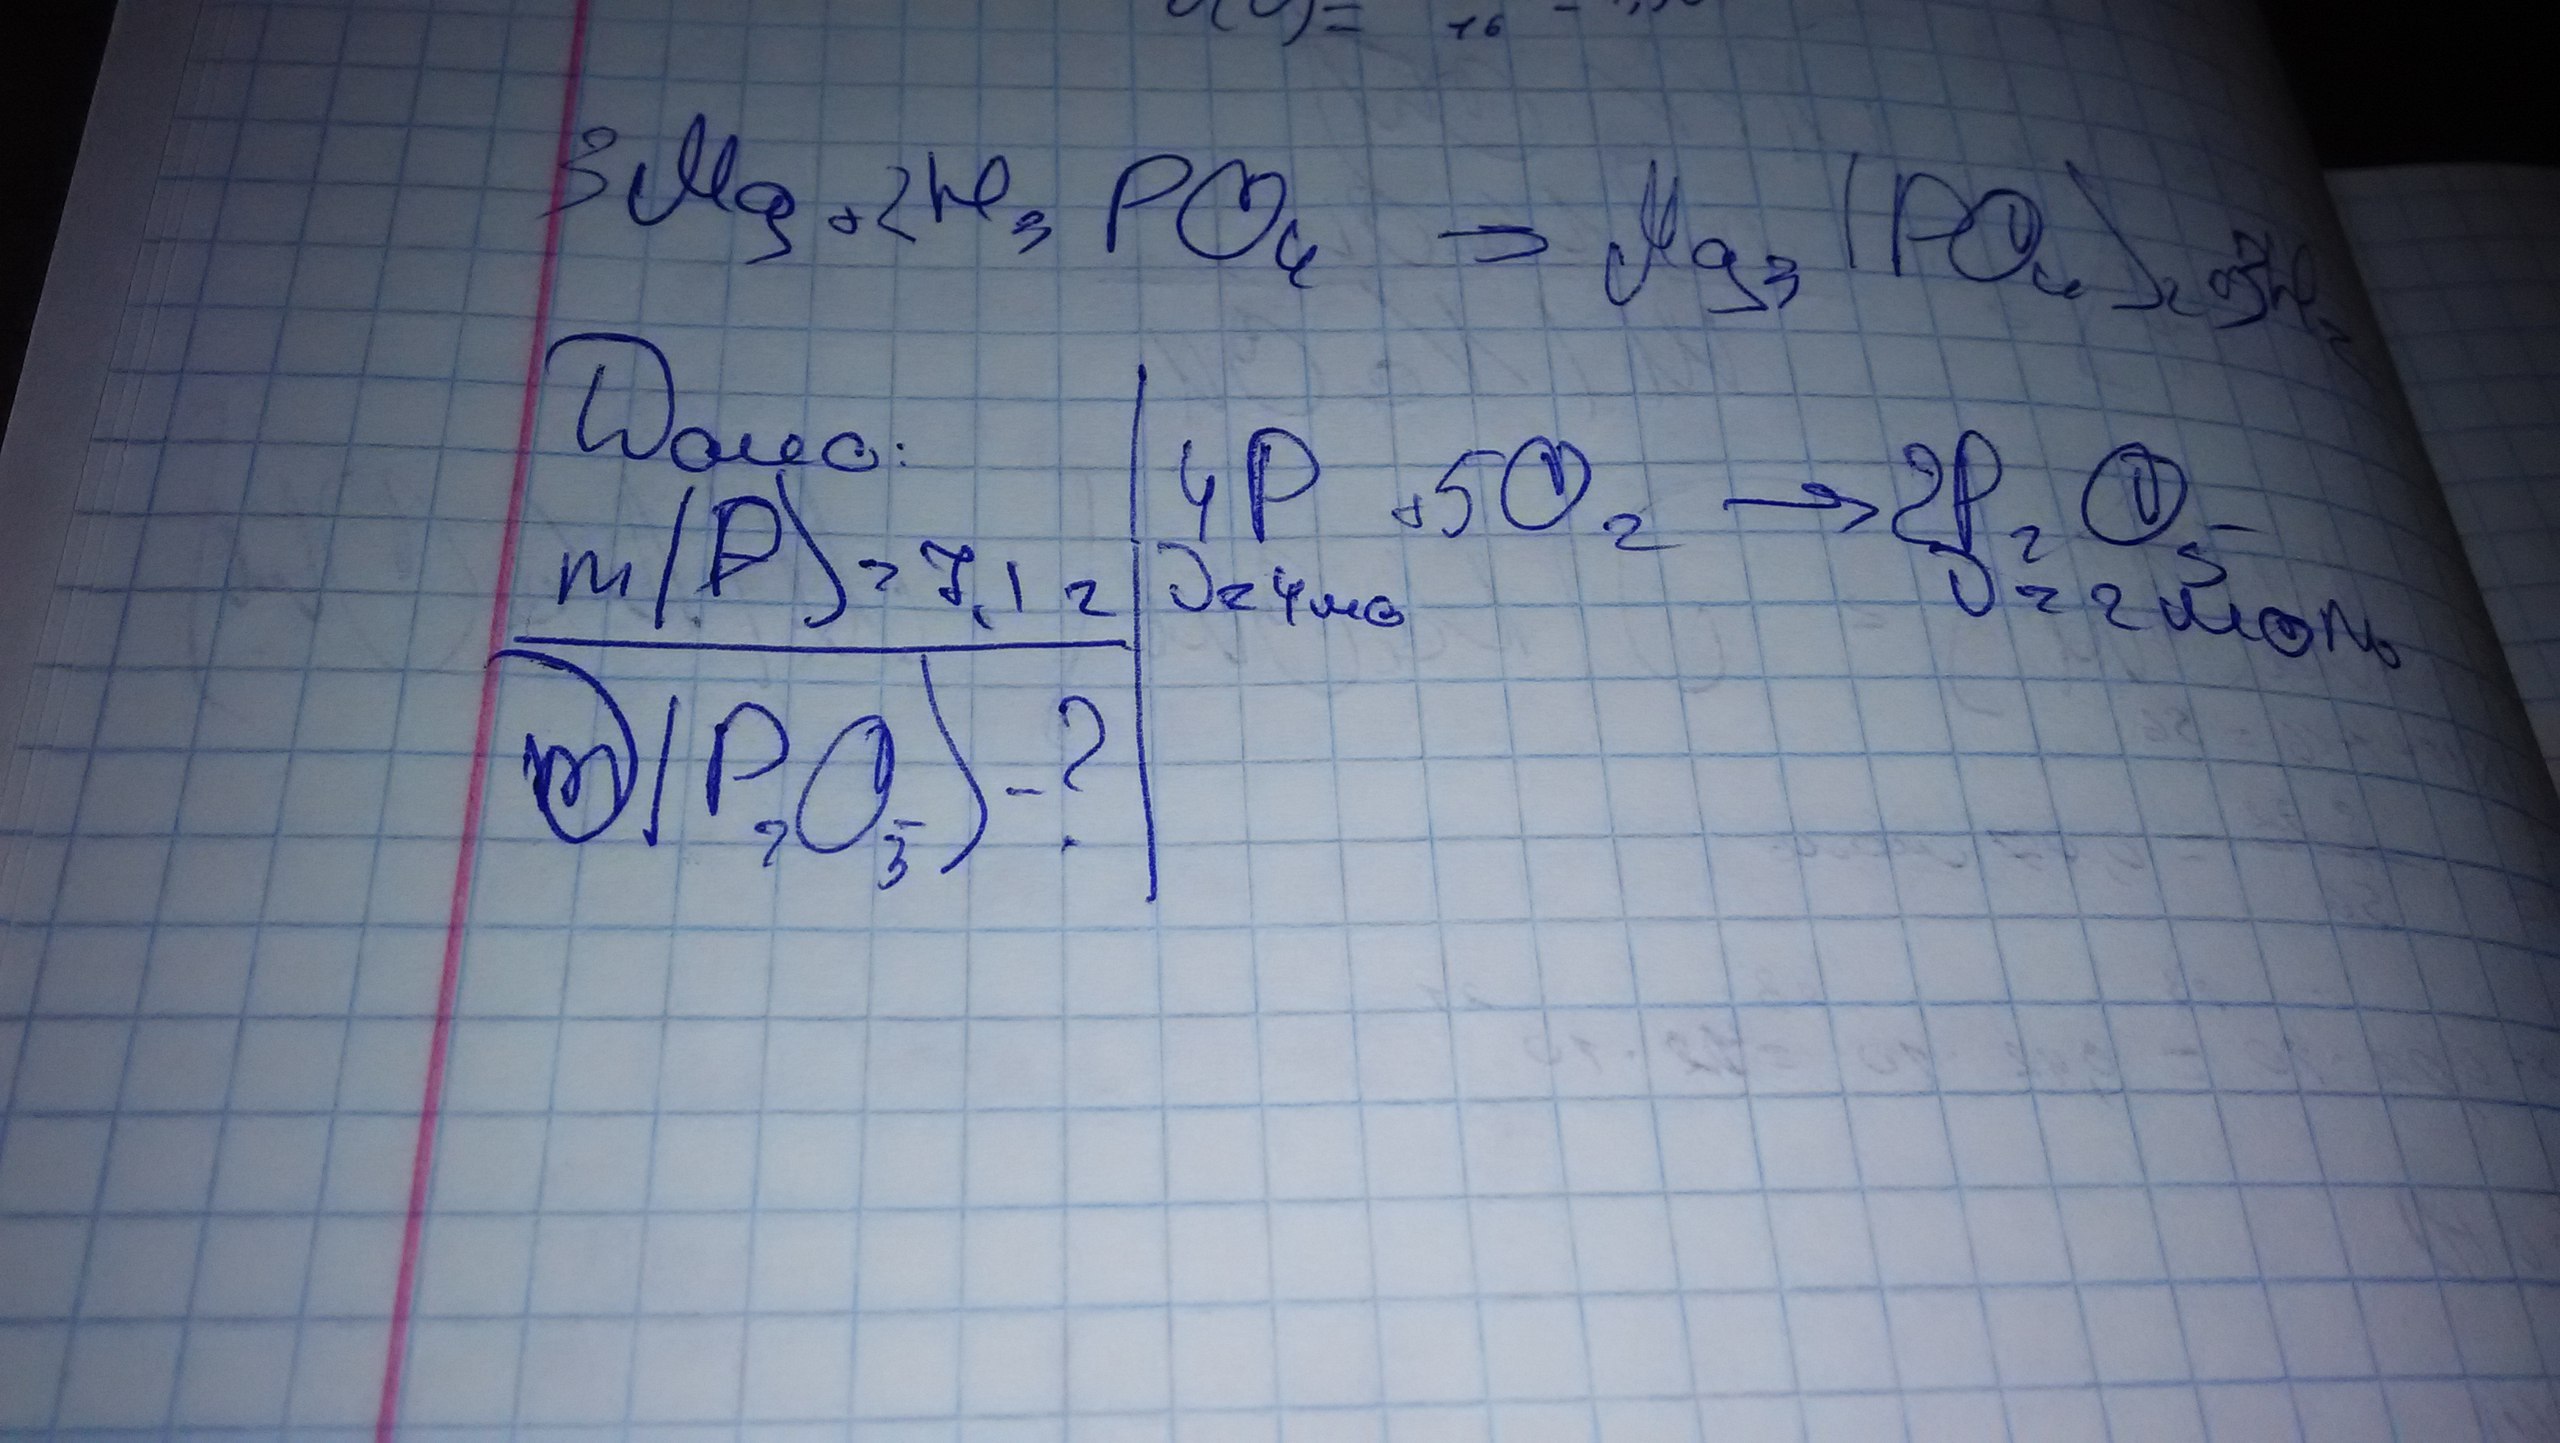 3Mg + 2H₃PO₄ → Mg₃(PO₄)₂ + 3H₂
Дано:
m(P) = 7,1 г
m(P₂O₅) - ?
4P + 5O₂ → 2P₂O₅
ν = 4 мо ν = 2 моль